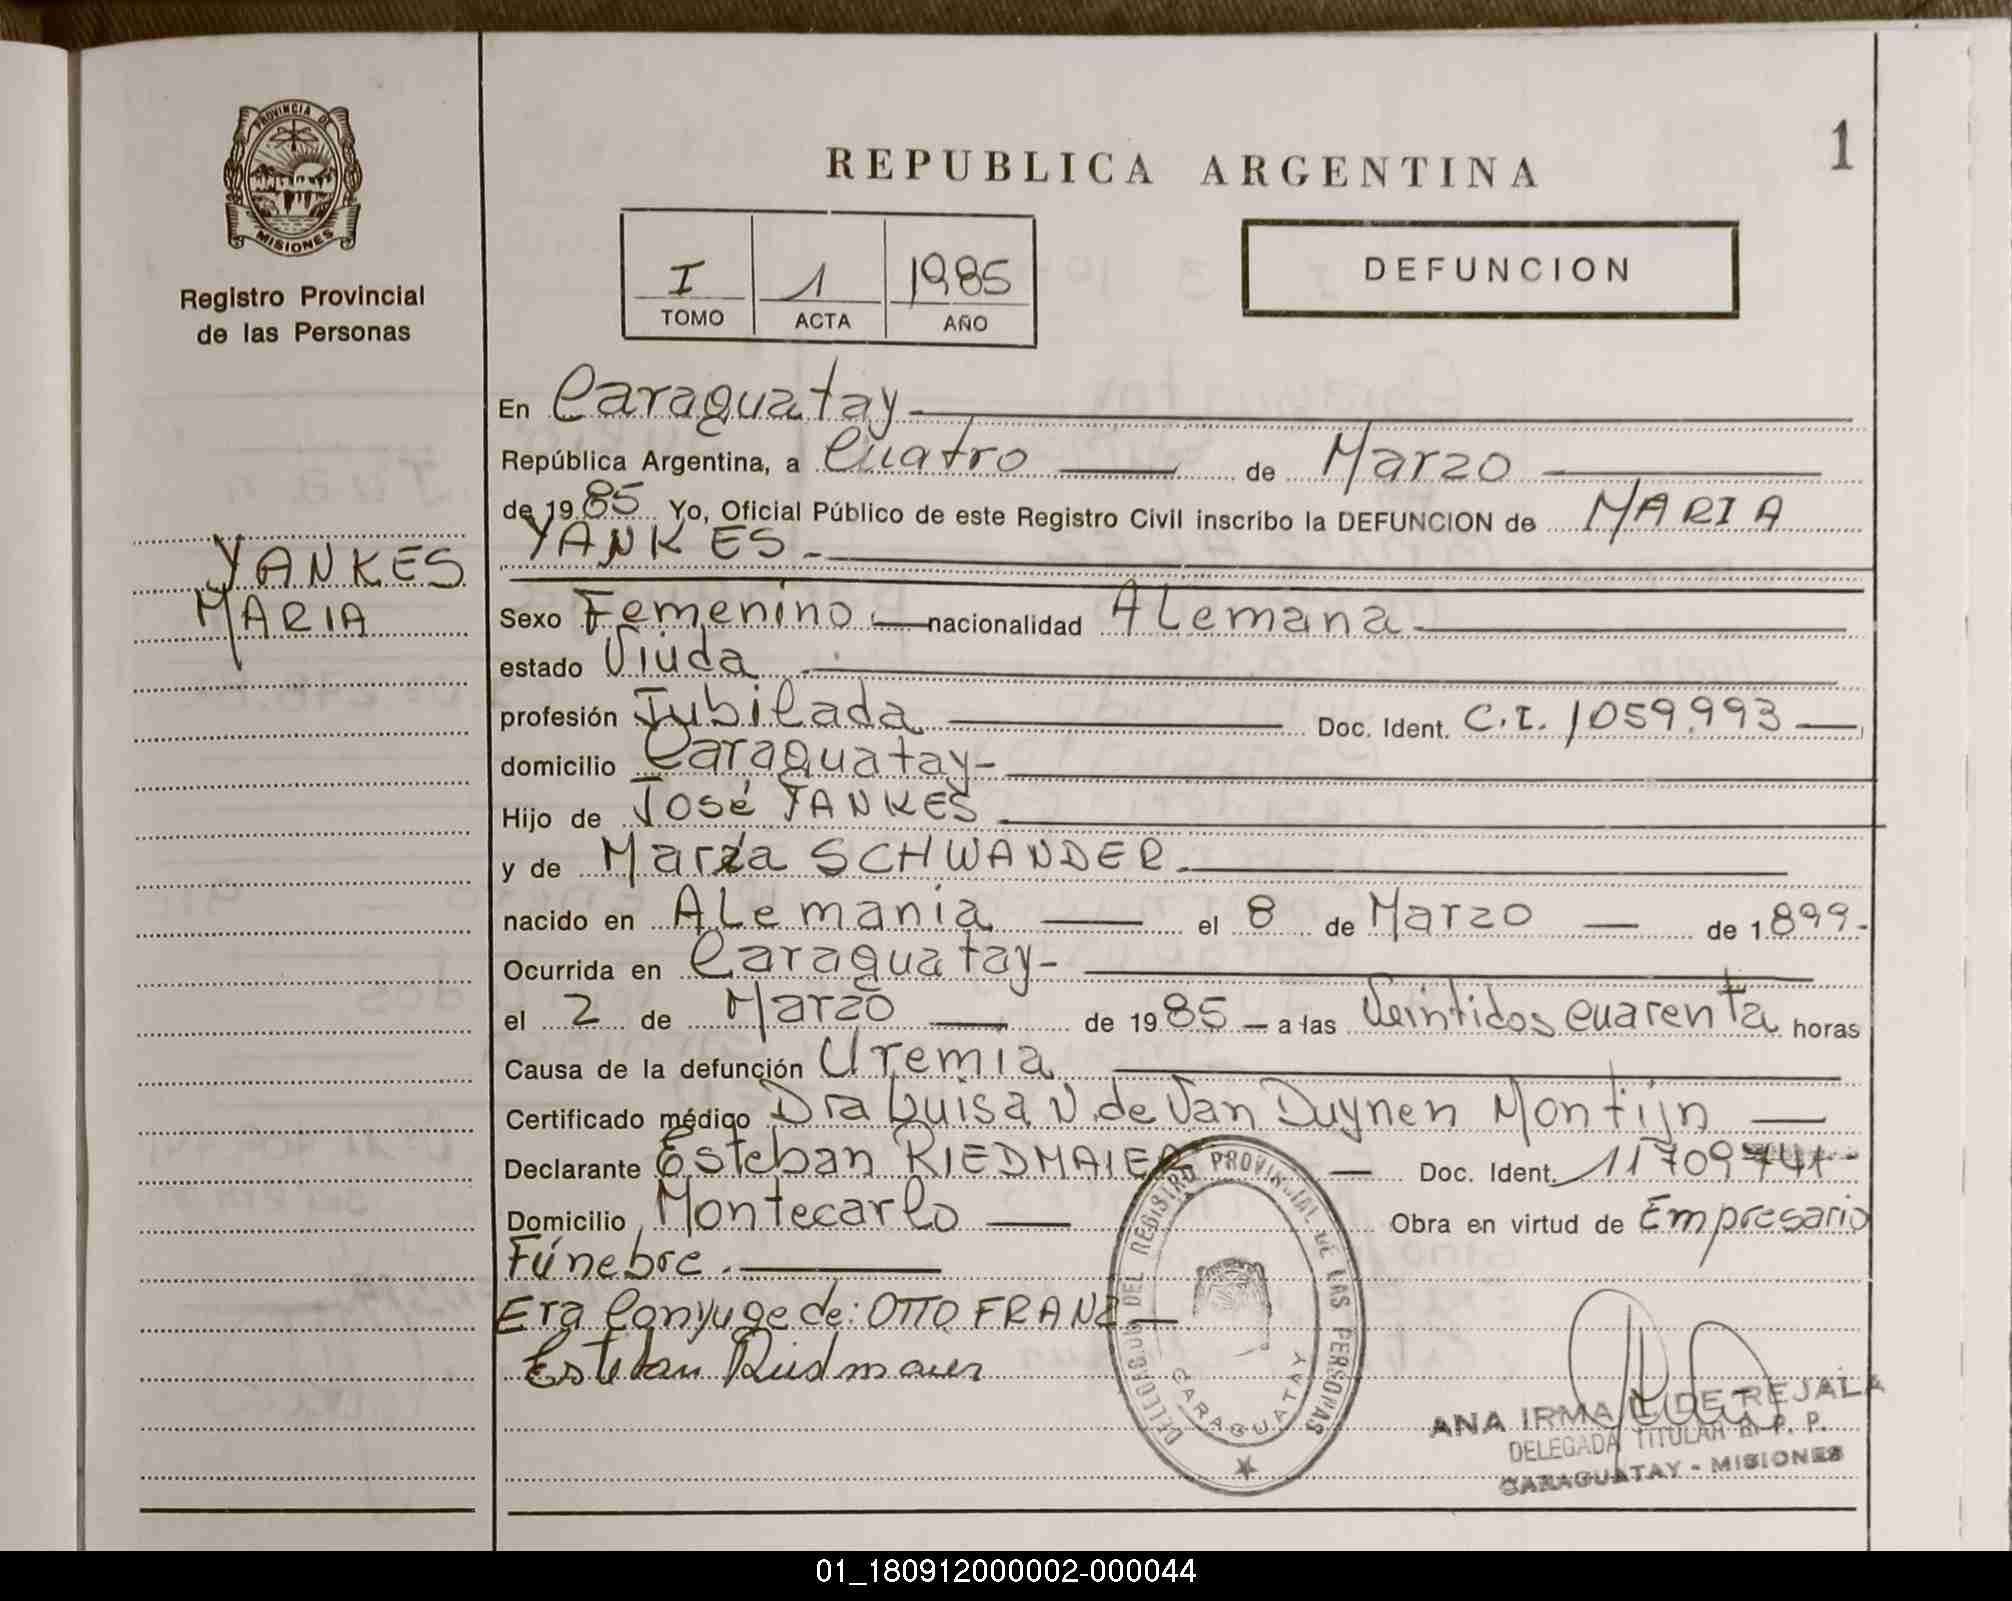 PROVINCIA DE
MISIONES
Registro Provincial
de las Personas
YANKES
MARIA
1
REPUBLICA ARGENTINA
I 1 1985
TOMO ACTA AÑO
DEFUNCION
En Caraguatay
República Argentina, a Cuatro de Marzo
de 1985 Yo, Oficial Público de este Registro Civil inscribo la DEFUNCION de MARIA
YANKES -
Sexo Femenino nacionalidad Alemana
estado Viuda
profesión Jubilada Doc. Ident. C.I. 1059.993
domicilio Caraguatay-
Hijo de José YANKES
y de María SCHWANDER
nacido en Alemania el 8 de Marzo de 1899-
Ocurrida en Caraguatay-
el 2 de Marzo de 1985 - a las Veintidos cuarenta horas
Causa de la defunción Uremia
Certificado médico Dra Luisa N. de Van Duynen Montijn
Declarante Esteban RIEDMAIER Doc. Ident.
Domicilio Montecarlo Obra en virtud de Empresario
Fúnebre.
Era Conyuge de: OTTO FRANZ
Esteban Riedmaier
DEL REGISTRO PROVINCIAL DE LAS PERSONAS
CARAGUATAY
ANA IRMA DE REJALA
DELEGADA TITULAR R. P. P.
CARAGUATAY - MISIONES
01_180912000002-000044